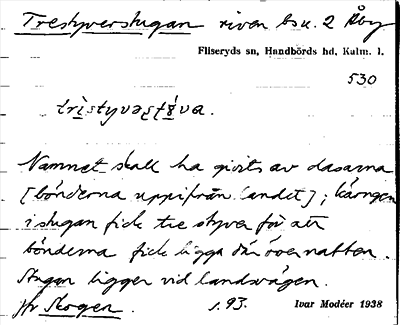 Trestyverstugan riven bs u. 2 Åby
Fliseryds sn, Handbörds hd, Kalm. l.
530
tristyvəʂtúva.
Namnet skall ha givits av dasarna
[bönderna uppifrån landet]; kärngen
i stugan fick tre styver för att
bönderna fick ligga där över natten.
Stugan ligger vid landsvägen.
Jfr Skogen. s. 93. Ivar Modéer 1938